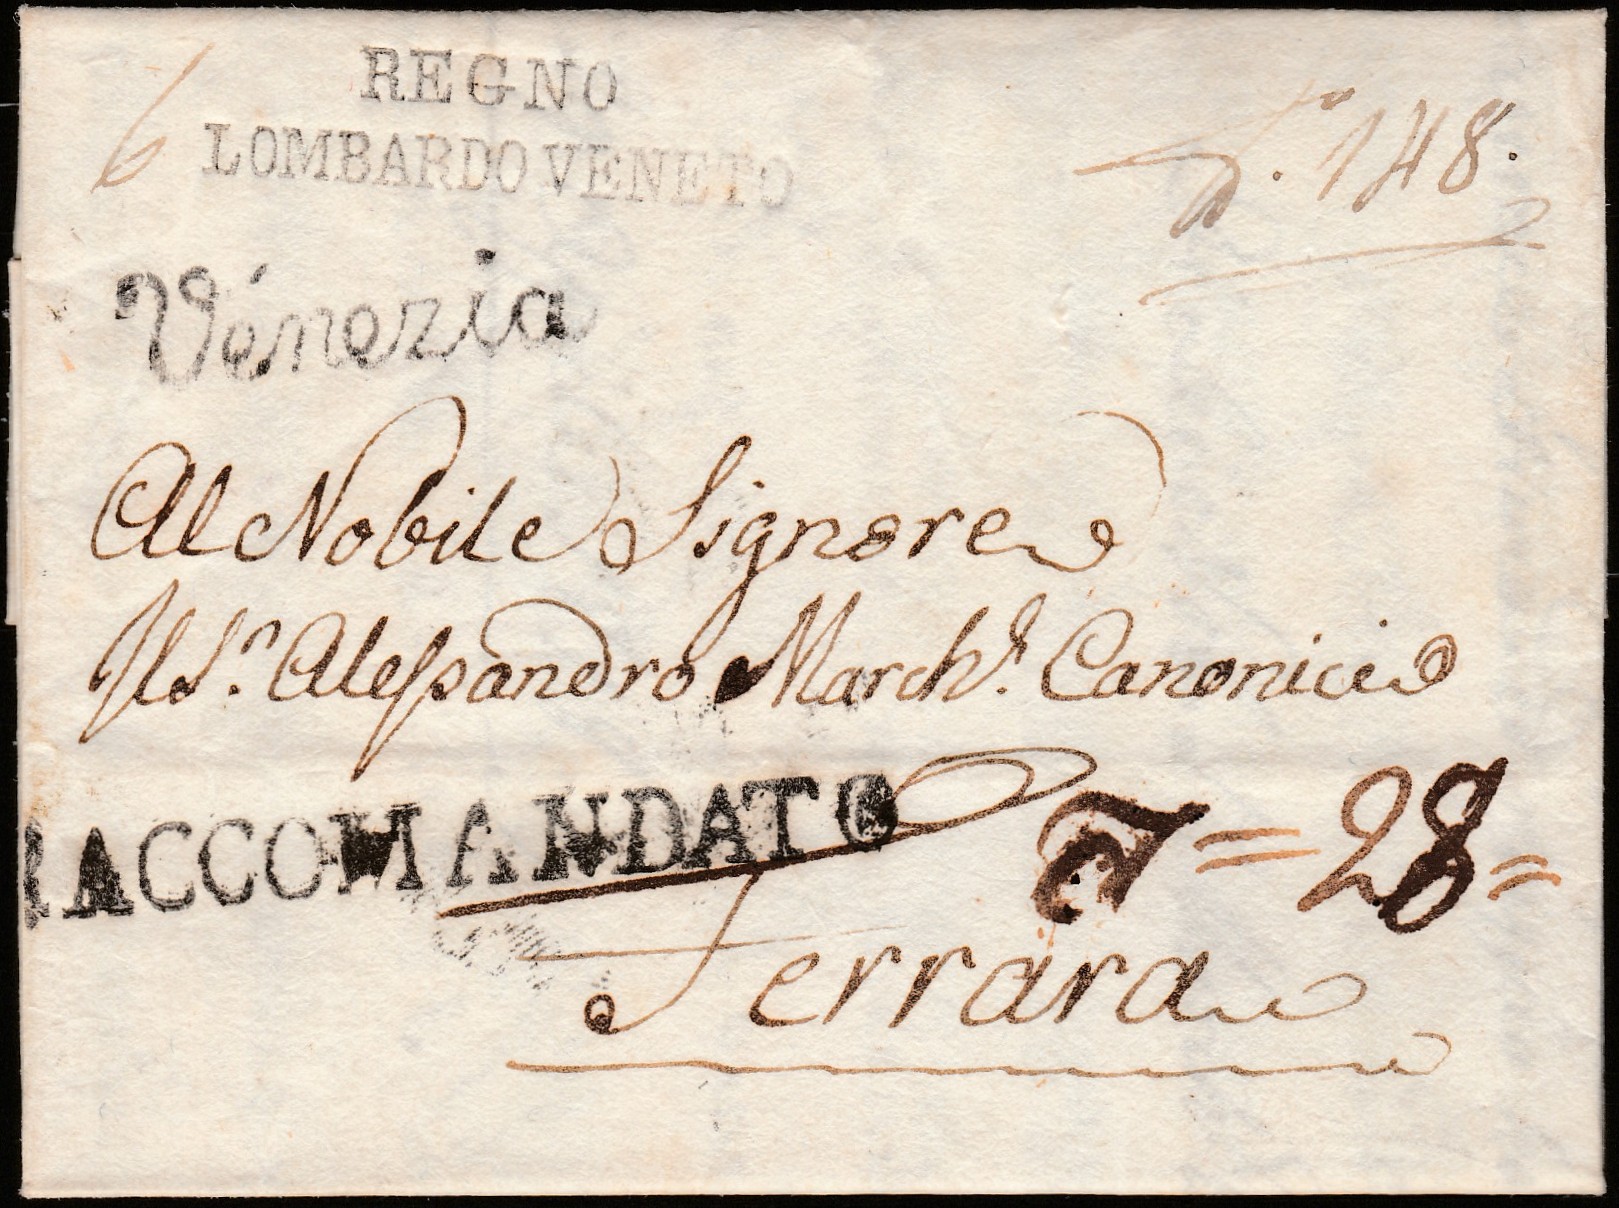 6
REGNO
LOMBARDO VENETO
N. 148.
Venezia
Al Nobile Signore
Il Sr. Alessandro Marche. Canonici
RACCOMANDATO
= 28 =
Ferrara